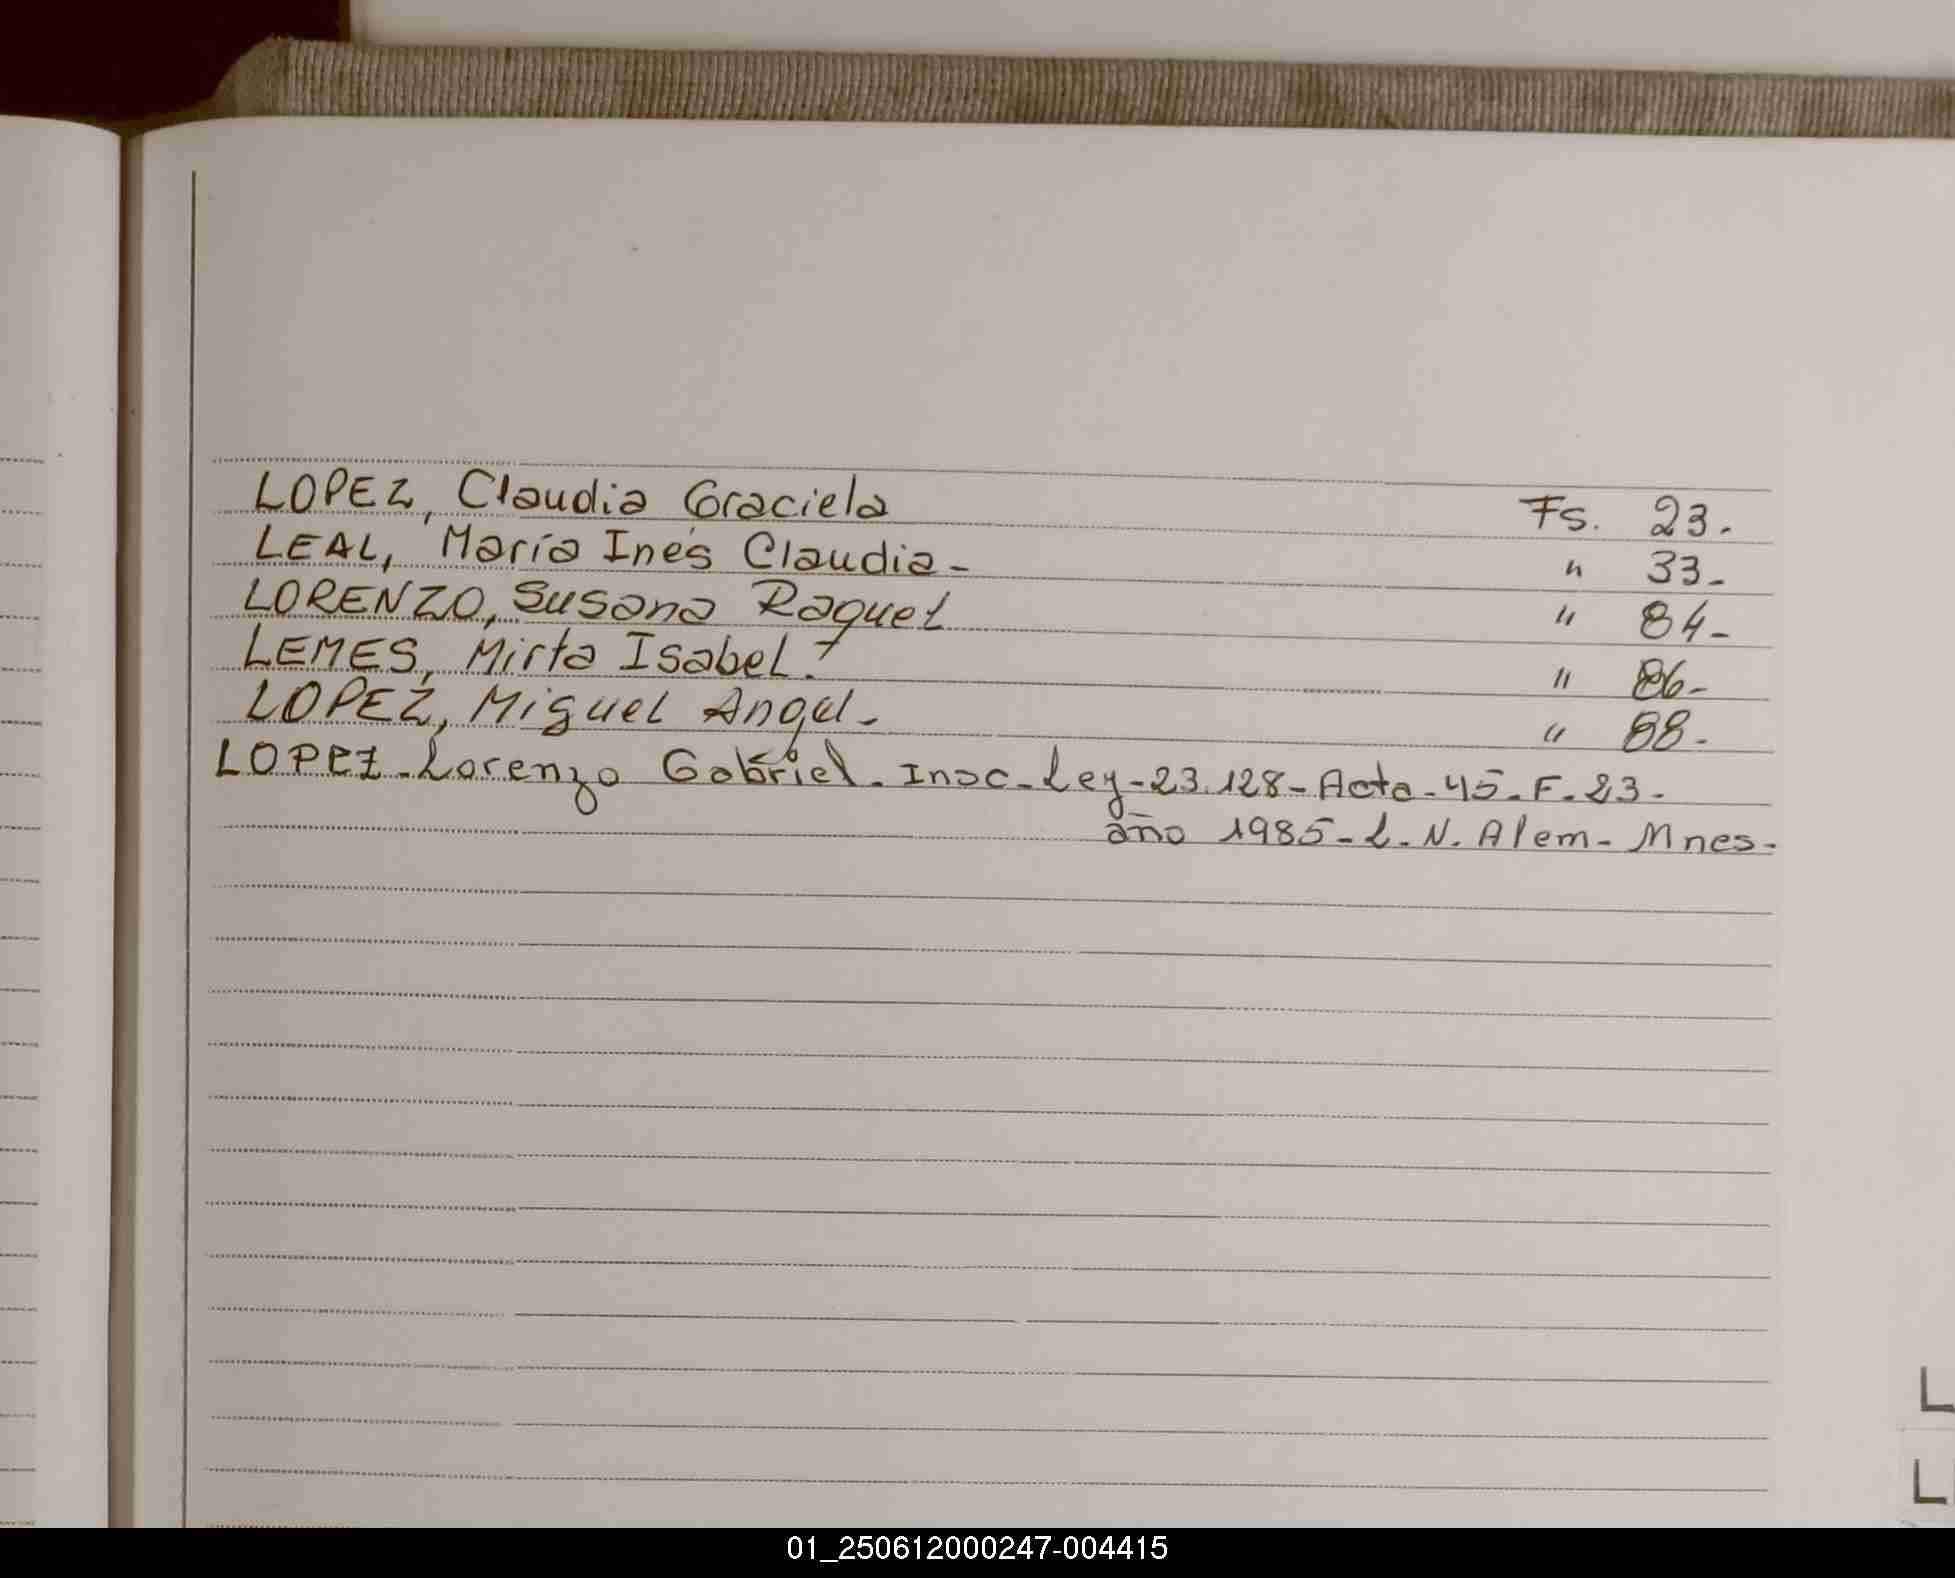 LOPEZ, Claudia Graciela Fs. 23.
LEAL, María Inés Claudia - " 33-
LORENZO, Susana Raquel " 84-
LEMES, Mirta Isabel. " 86-
LOPEZ, Miguel Angel. " 88-
LOPEZ - Lorenzo Gabriel. Insc - Ley - 23.128 - Acta - 45 - F. 23 -
año 1985 - L. N. Alem - Mnes -
L
L
01_250612000247-004415